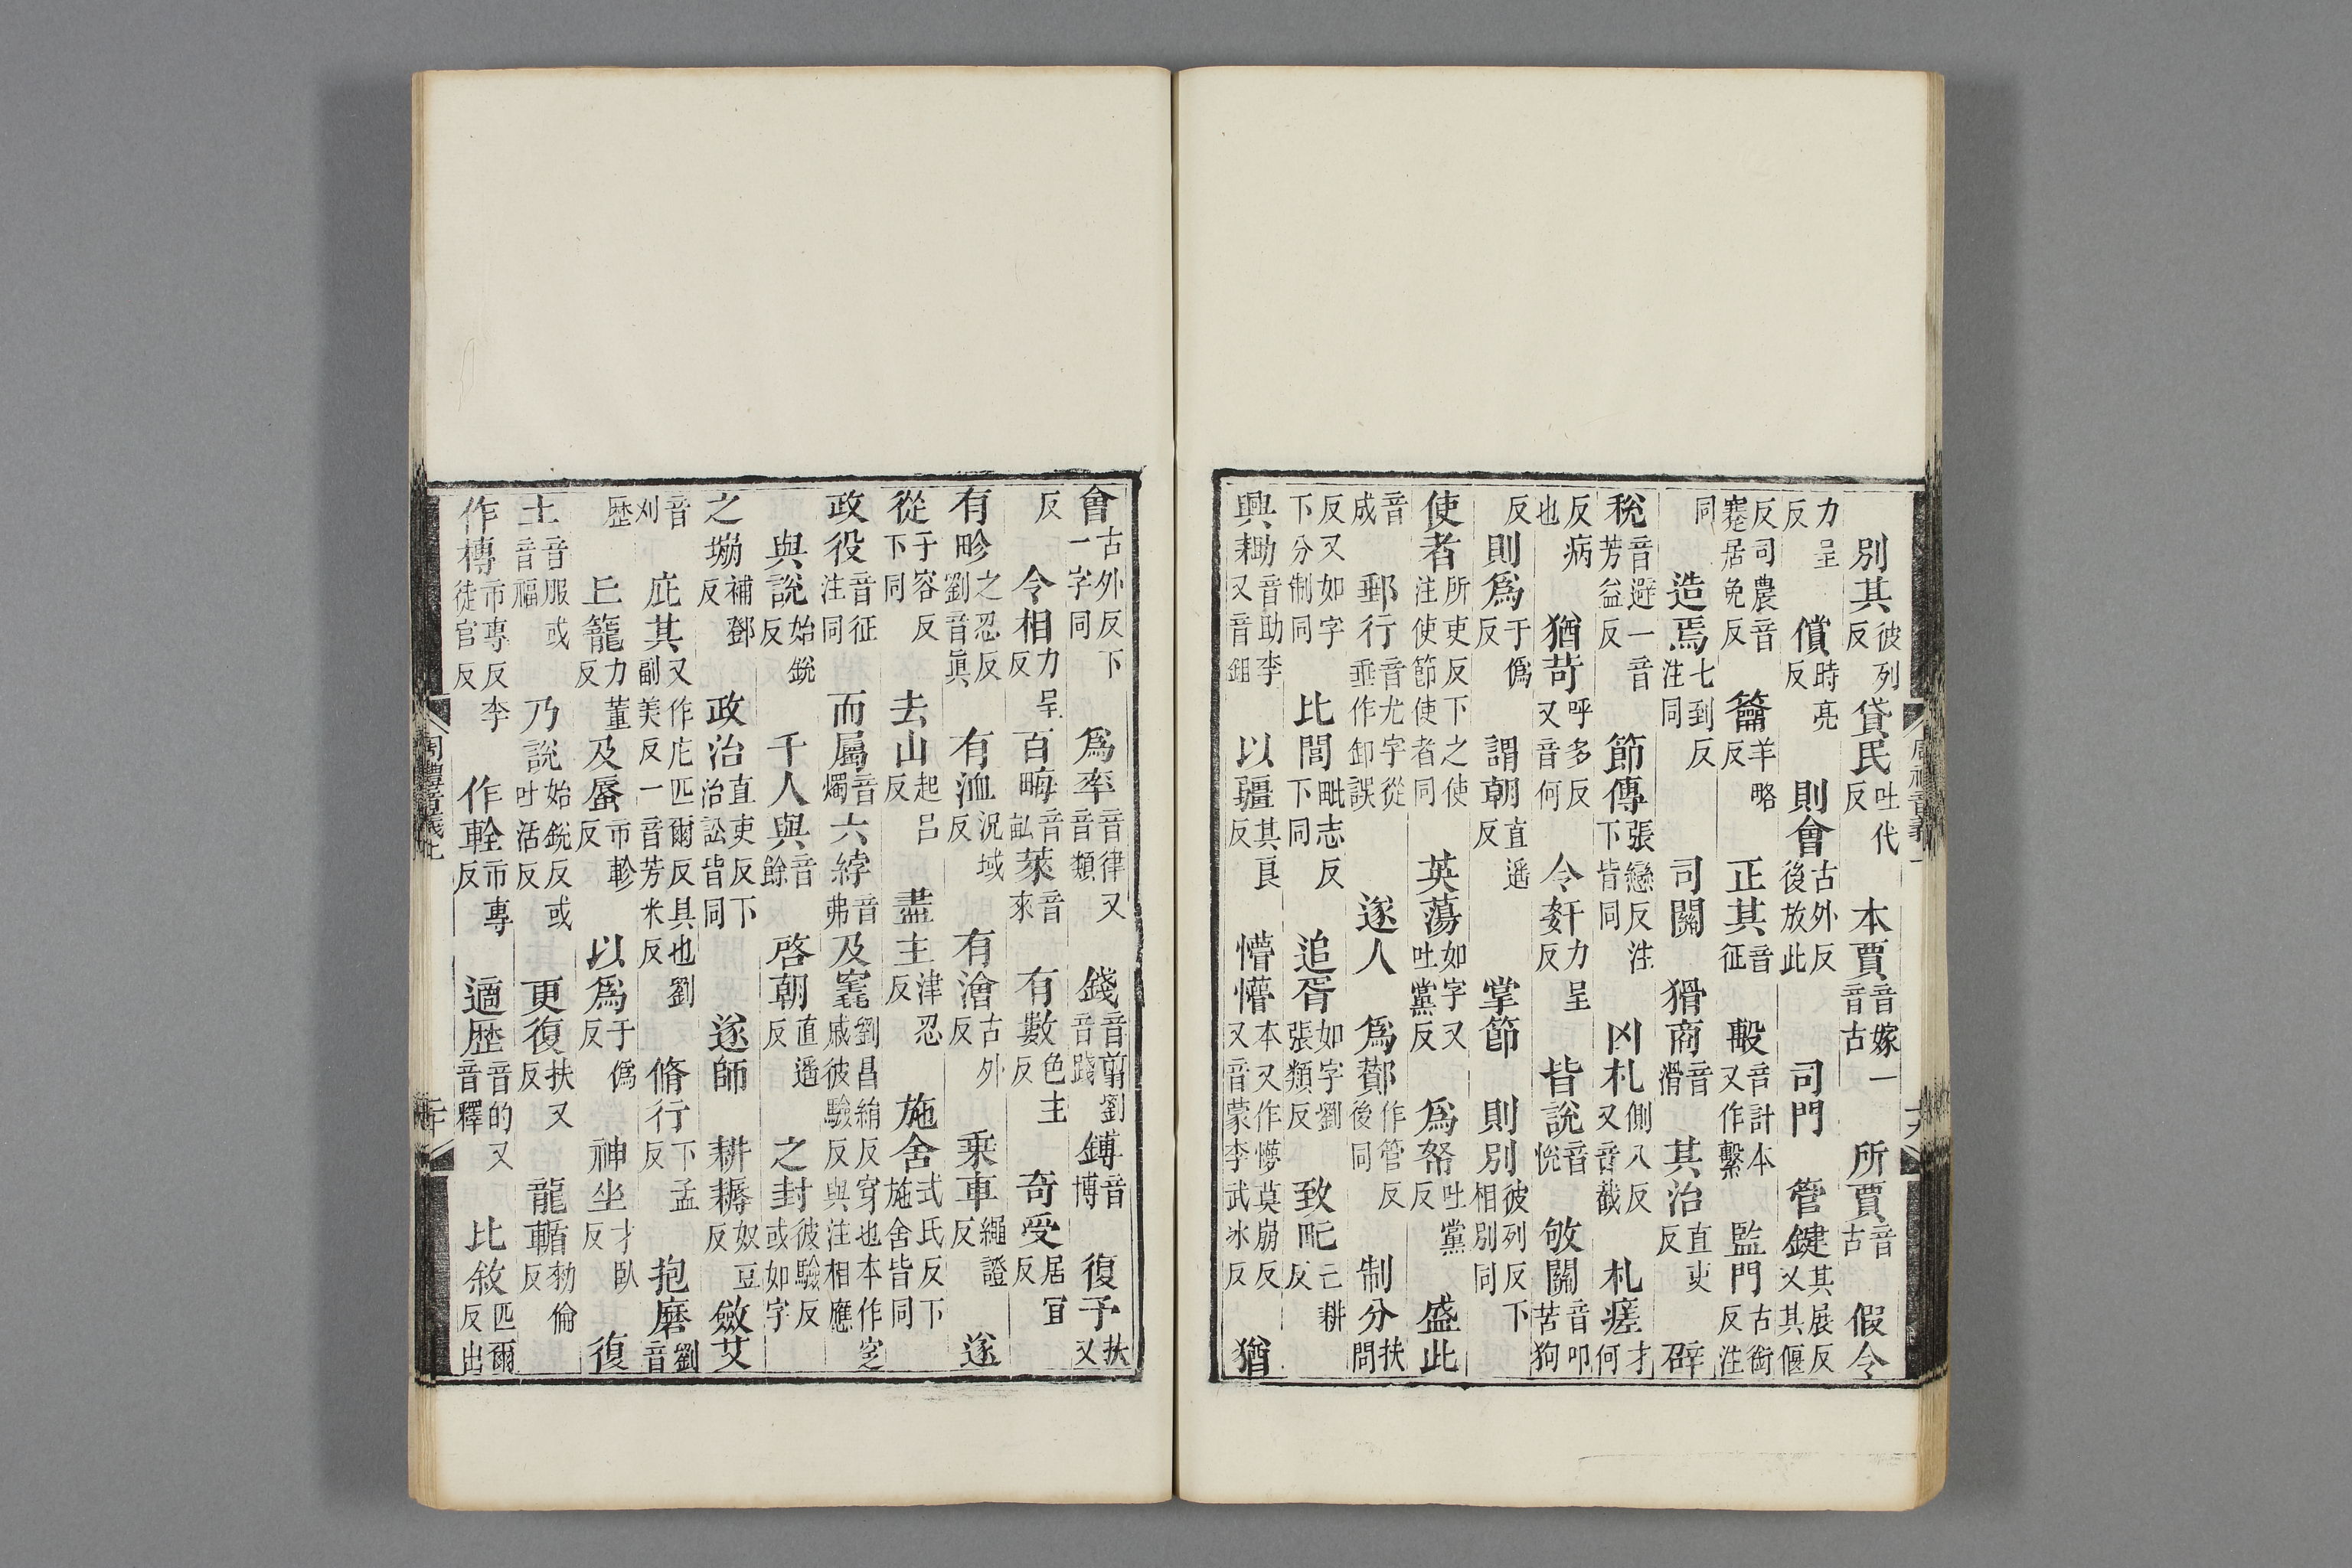 別其彼列反貸民吐代反本賈音嫁一音古所賈音古假令
力呈反償時亮反則會古外反後放此司門管鍵其展反又其偃
反司農音蹇居免反籥羊略反正其音征毄音計本又作繫監門古銜反注
同造焉七到反注同司關猾商音滑其治直吏反辟
稅音避一音芳益反節傳張戀反注下皆同凶札側八反又音截札瘥才何
反病也猶苛呼多反又音何令奸力呈反皆說音悅敂關音叩苦狗
反則爲于僞反謂朝直遥反掌節則別彼列反下相別同
使者所吏反下之使注使節使者同英蕩如字又吐黨反爲帑吐黨反盛此
音成郵行音尤字從垂作卸誤遂人爲酇作管反後同制分扶問
反又如字下分制同比閭毗志反下同追胥如字劉張類反致甿亡耕反
興耡音助李又音鉏以疆其良反懵懵本又作懜莫崩反又音蒙李武冰反猶
會古外反下一字同爲率音律又音類錢音剪劉音踐鎛音博復予扶又
反令相力呈反百畮音畝萊音來有數色主反奇受居宜反
有畛之忍反劉音眞有洫況域反有澮古外反乗車繩證反遂
從于容反下同去山起呂反盡主津忍反施舍式氏反下施舍皆同
政役音征注同而屬音燭六綍音弗及窆劉昌絹反穿也本作窆戚彼驗反與注相應
與說始銳反千人與音餘啓朝直遥反之封彼驗反或如字
之堋補鄧反政治直吏反下治訟皆同遂師耕耨奴豆反斂艾
音刈庇其又作庀匹爾反具也劉副美反一音芳米反脩行下孟反抱磨劉音
歷丘籠力董反及蜃市軫反以爲于僞反神坐才臥反復
土音服或音福乃說始銳反或吐活反更復扶又反龍輴勑倫反
作槫市專反李徒官反作輇市專反適歷音的又音釋比敘匹爾反出
周禮音義上
二十